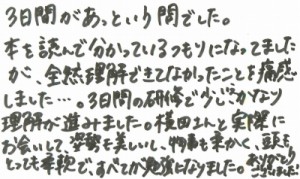 3日間があっという間でした。
本を読んで分かっているつもりになってました
が、全然理解できてなかったことを痛感
しました…。3日間の研修で少しづつかなり
理解が進みました。横田さんと実際に
お会いして、姿勢も美しいし、物事も柔かく、頭も
とっても柔軟で、すべてが勉強になりました。ありがとう
ございました!